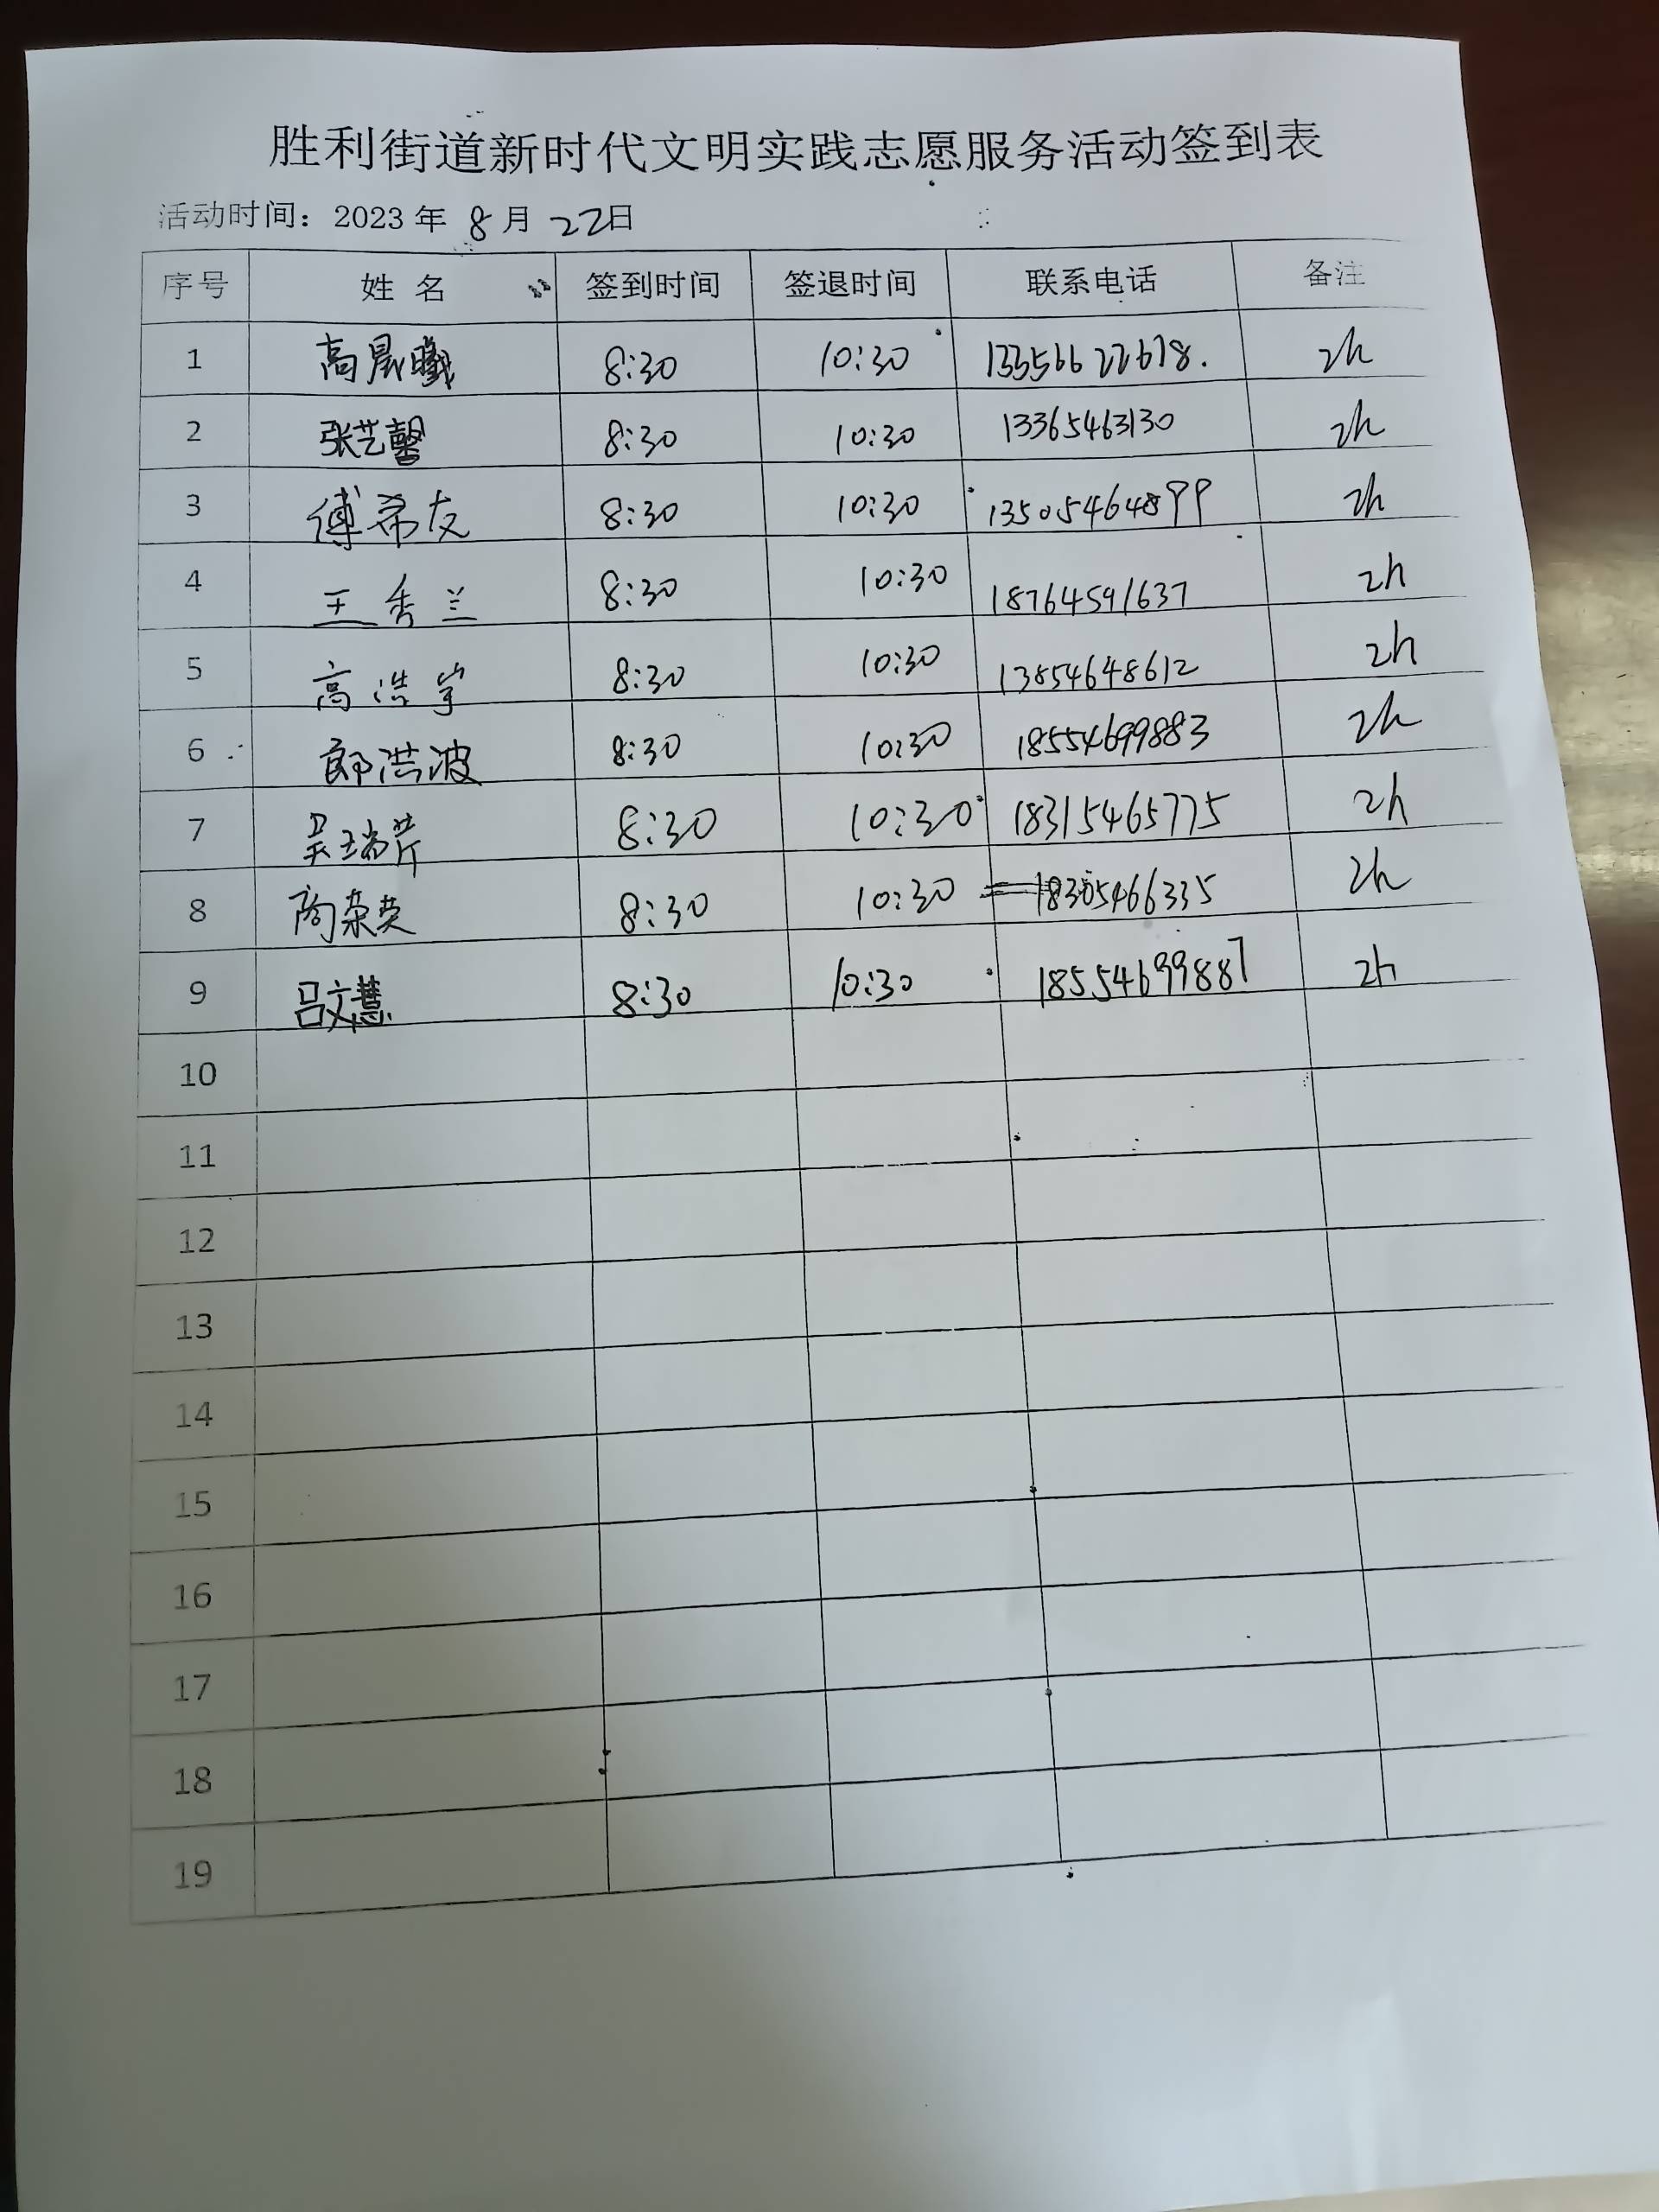 胜利街道新时代文明实践志愿服务活动签到表
活动时间：2023年 8月 22日
序号 姓名 签到时间 签退时间 联系电话 备注
1 高晨曦 8:30 10:30 13356622618. 2h
2 张艺馨 8:30 10:30 13365463130 2h
3 傅希友 8:30 10:30 13505464899 2h
4 王秀兰 8:30 10:30 18764591637 2h
5 高浩宇 8:30 10:30 13854648612 2h
6 郎洪波 8:30 10:30 18554699883 2h
7 吴瑞芹 8:30 10:30 18315465775 2h
8 商荣英 8:30 10:30 18305466335 2h
9 吕文慧 8:30 10:30 18554699887 2h
10
11
12
13
14
15
16
17
18
19